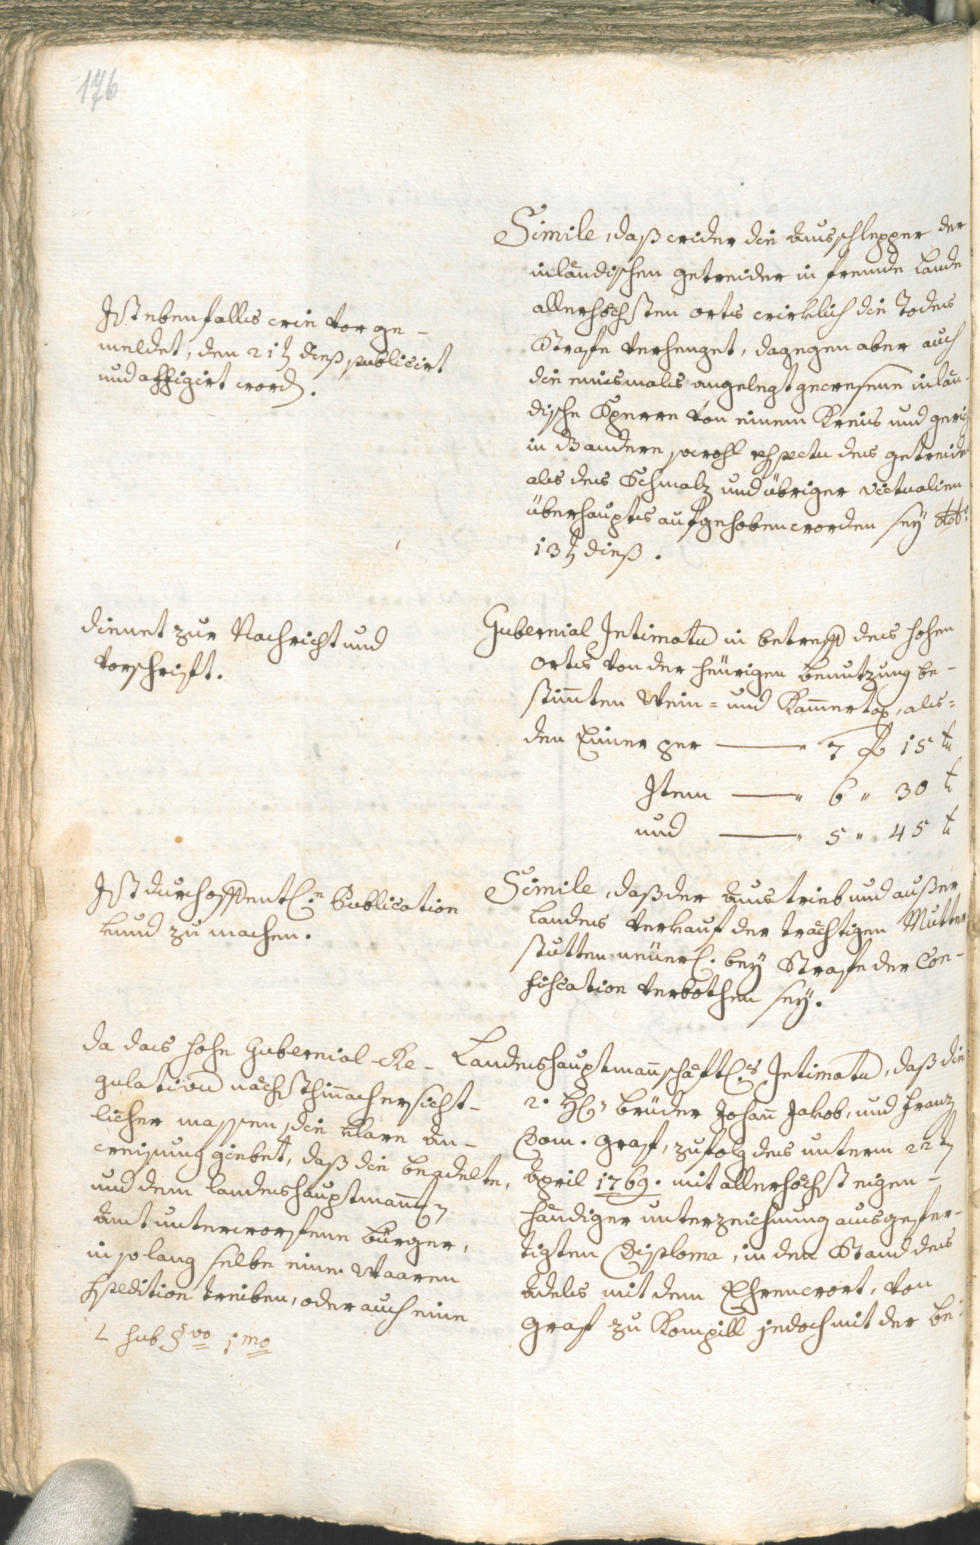 176
Simile, daß wider die Ausschlepper der
inländischen getreider in fremde Lande
allerhöchsten orts wirklich die Todes
Strafe verhenget, dagegen aber auch
die einsmals angelegt gewesene inlän-
dische Sperre von einem Kreis und gerich
in das andere, sowohl respectu des getreides
als des Schmalz und übriger victualien
überhaupts aufgehoben worden sey ddto
13t dieß.
Ist ebenfalls wie vor ge-
meldet, den 21t dieß publicirt
und affigirt word.
Gubernial Intimatum in betreff des hohen
orts von der heurigen benutzung be-
stimten Wein= und Kamertax, als=
den Eimer per — 7 f 15 x
Item — " 6 " 30 x
und — " 5 " 45 x
dienet zur Nachricht und
Vorschrift.
Simile, daß der Austrieb und außer
Landes Verkauf der trächtigen Mutter
stutten neüerl. bey Strafe der Con-
fiscation verbothen sey.
Ist durch offentle Publication
kund zu machen.
Landeshauptmanschäftles Intimatum, daß die
2. H. Brüder Johann Jakob, und Franz
Dom. Graf, zufolg des unterm 22t
April 1769. mit allerhöchst eigen-
händiger unterzeichnung ausgefer-
tigten Diploma, in den Stand des
Adels mit dem Ehrenwort, von
Graf zu Kompill jedoch mit der be-
da das hohe Gubernial Re-
gulativum nächsthinnach ersicht-
licher massen, die klare An-
weisung giebet, daß die beadelte,
und dem Landeshauptman
Amt unterworfene Bürger,
in so lang selbe eine Waaren
spedition treiben, oder auch eine
L sub §vo 1mo